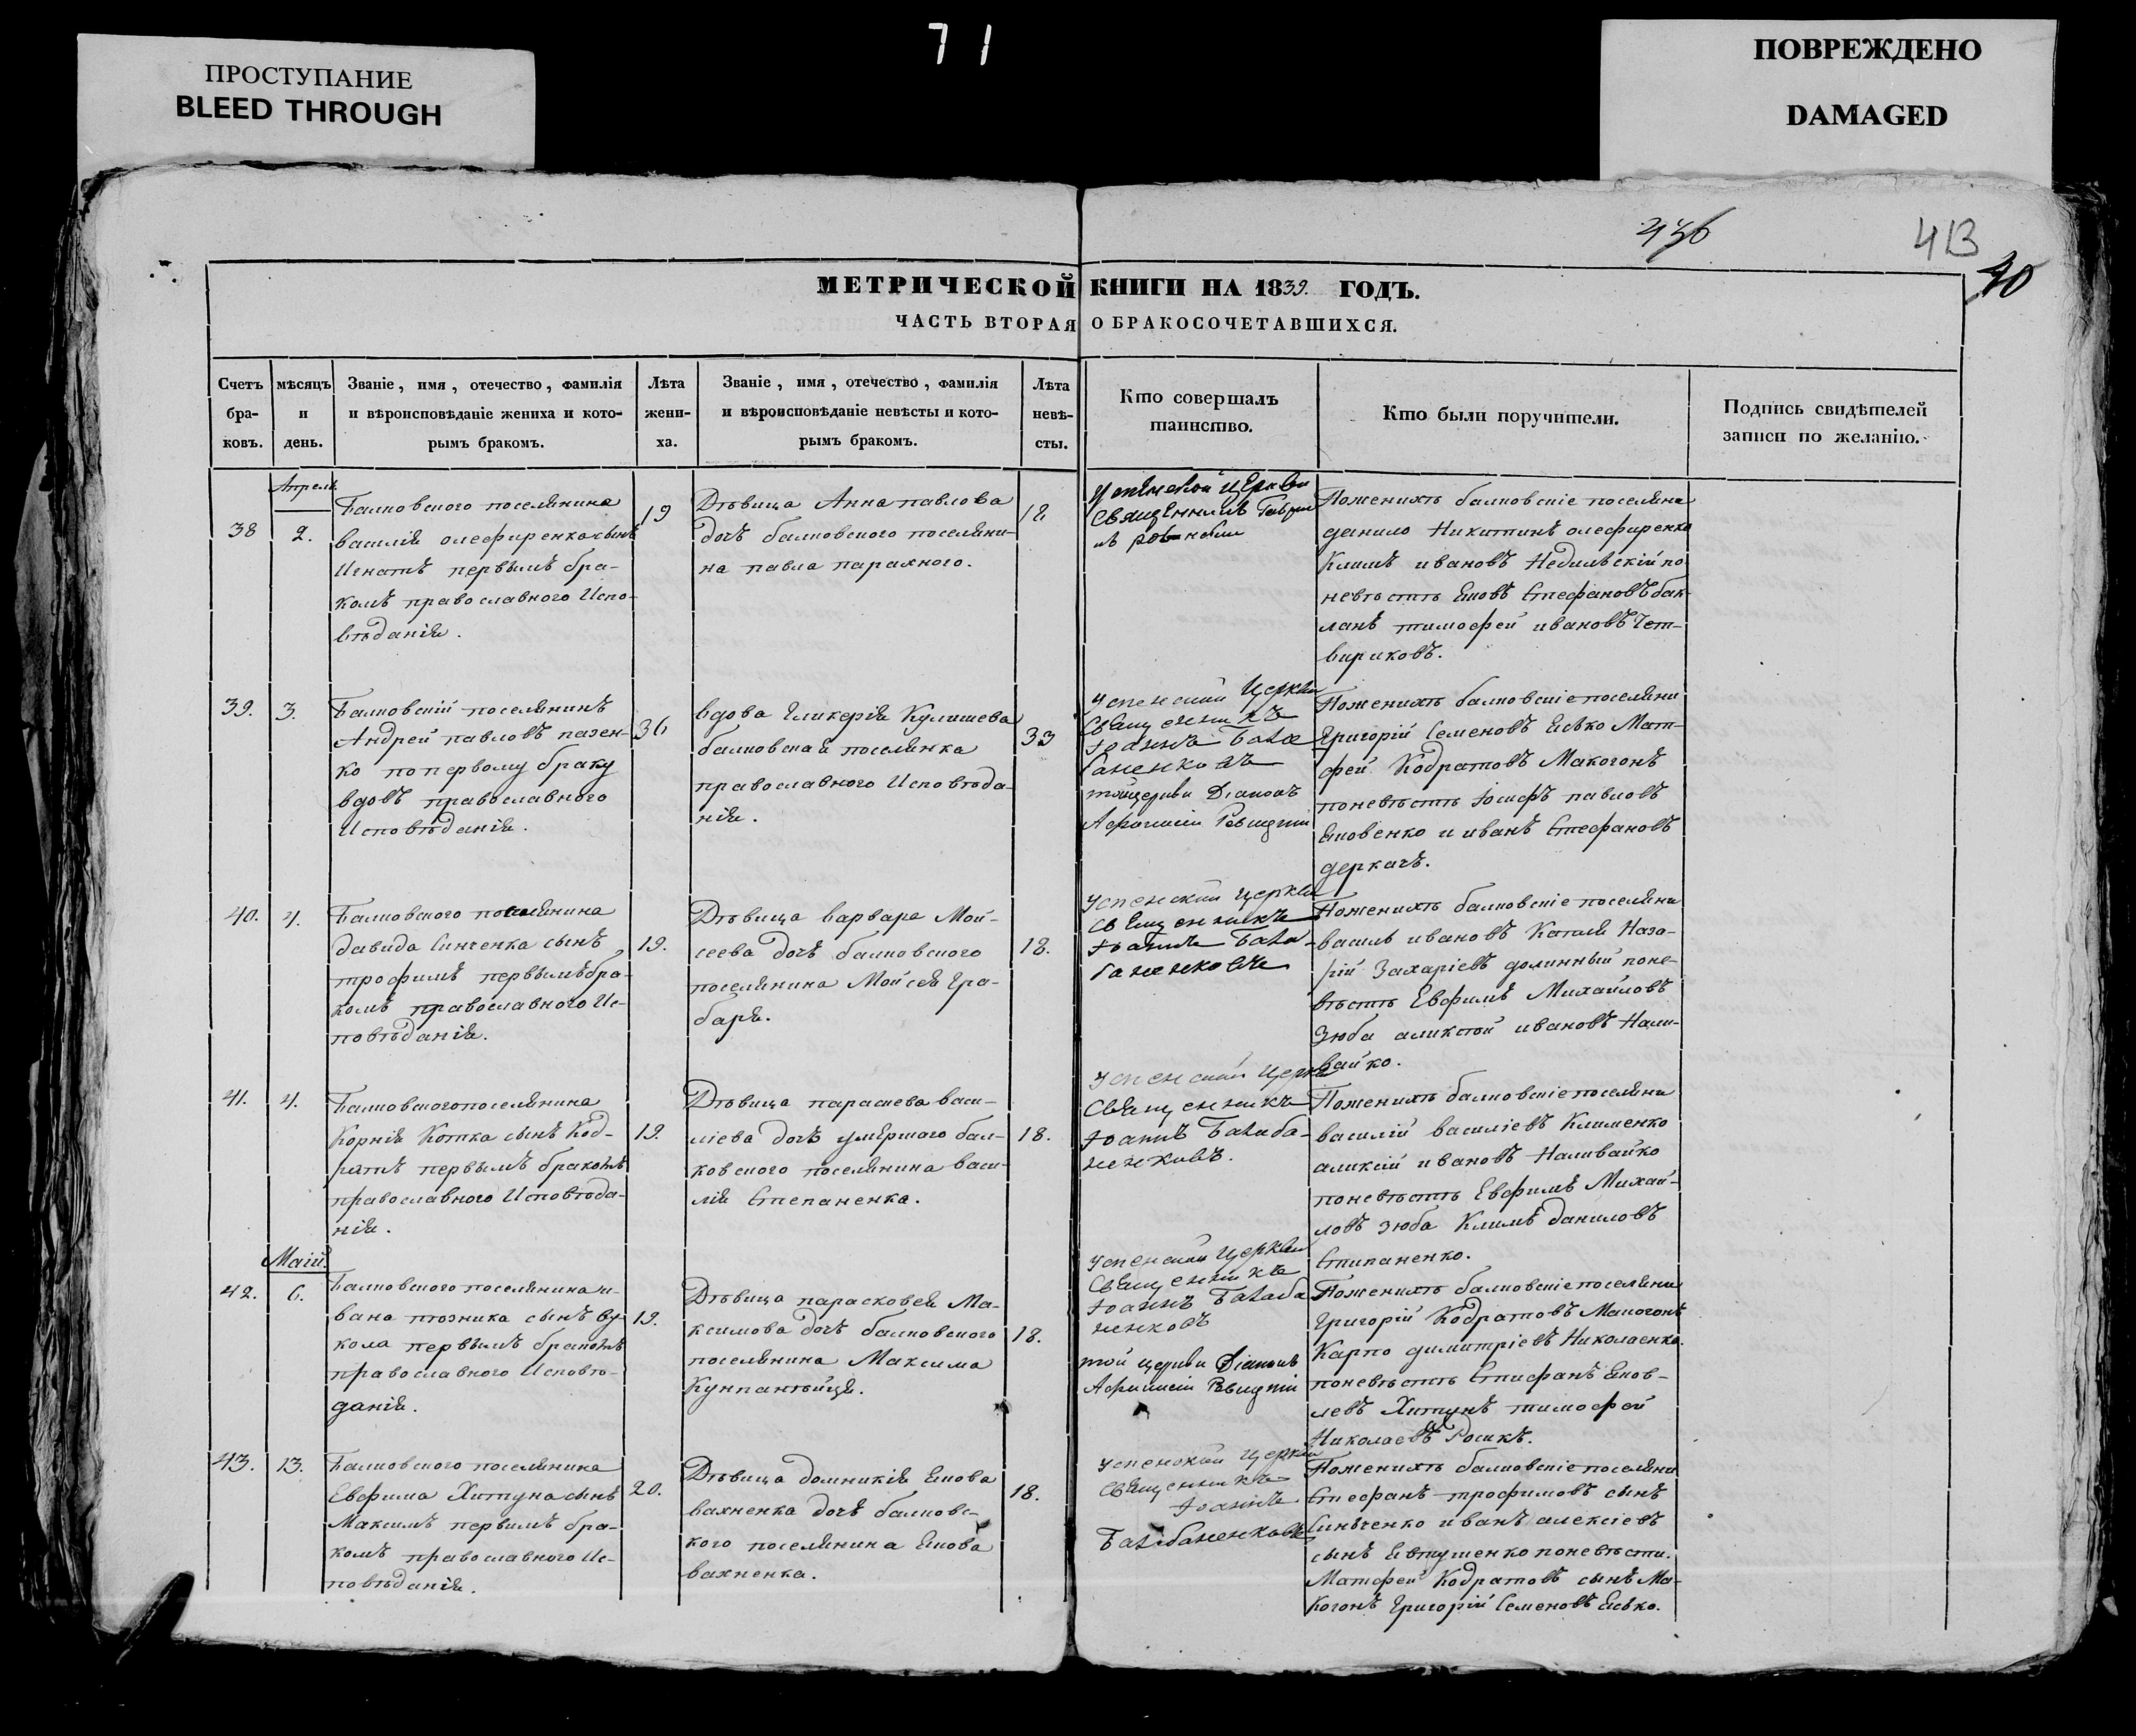 71
ПРОСТУПАНИЕ
BLEED THROUGH
ПОВРЕЖДЕНО
DAMAGED
413
40
МЕТРИЧЕСКОЙ КНИГИ НА 1839. ГОДЪ.
ЧАСТЬ ВТОРАЯ О БРАКОСОЧЕТАВШИХСЯ.
Счетъ
бра-
ковъ.
мѣсяцъ
и
день.
Званіе, имя, отечество, фамилія
и вѣроисповѣданіе жениха и кото-
рымъ бракомъ.
Лѣта
жени-
ха.
Званіе, имя, отечество, фамилія
и вѣроисповѣданіе невѣсты и кото-
рымъ бракомъ.
Лѣта
невѣ-
сты.
Кто совершалъ
таинство.
Кто были поручители.
Подпись свидѣтелей
записи по желанію.
Апрель
38
2.
Балковского поселянина
василія олефиренка сынъ
Игнатъ первымъ бра-
комъ православного Испо-
вѣданія.
19
Дѣвица Анна павлова
дочъ балковского поселяни-
на павла парахного.
18
Успенской церкви
Священникъ
Пожениху балковскіе поселяни
данило Никитинъ олефиренко
Климъ ивановъ по
невѣстѣ Яковъ Стефановъ бак-
ланъ тимофей ивановъ Чет-
вириковъ.
39.
3.
Балковскій поселянинъ
Андрей павловъ пазен-
ко по первому браку
вдовъ православного
Исповѣданія.
36
вдова Гликерія Кулишева
балковская поселянка
православного Исповѣда-
нія.
33
Успенской Церкви
Священникъ
Іоаннъ Бала-
баненковъ
той церкви Діаконъ
Пожениху балковскіе поселяни
Григорій Семеновъ Еѣко Мат-
фей Кодратовъ Макогонъ
поневѣстѣ Іосифъ павловъ
Яковенко и иванъ Стефановъ
деркачъ.
40.
4.
Балковского поселянина
давида Синченка сынъ
трофимъ первымъ бра-
комъ православного Ис-
повѣданія.
19.
Дѣвица варвара Мой-
сеева дочъ балковского
поселянина Мойсея Гра-
баря.
18.
Успенской церкви
Священникъ
Іоаннъ Бала-
баненковъ
Пожениху балковскіе поселяни
василь ивановъ Наза-
рій Захаріевъ долинный поне-
вѣстѣ Евфимъ Михайловъ
Зюба аликсѣй ивановъ Нали-
вайко.
41.
4.
Балковского поселянина
Корнія Котка сынъ Код-
ратъ первымъ бракомъ
православного Исповѣда-
нія.
19.
Дѣвица параскева васи-
ліева дочъ умершого бал-
ковского поселянина васи-
лія Степаненка.
18.
Успенской Церкви
Священникъ
Іоаннъ Балаба-
ненковъ.
Пожениху балковскіе поселяни
василій василіевъ Клименко
аликсій ивановъ Наливайко
поневѣстѣ Евфимъ Михай-
ловъ зюба Климъ даниловъ
Стипаненко.
Маій.
42.
6.
Балковского поселянина и-
вана сынъ ву-
кола первымъ бракомъ
православного Исповѣ-
данія.
19.
Дѣвица парасковея Ма-
ксимова дочъ балковского
поселянина Максима
18.
Успенской Церкви
Священникъ
Іоаннъ Балаба
ненковъ
той церкви Діаконъ
Пожениху балковскіе поселяни
Григорій Кодратовъ Макогонъ
Карпо димитріевъ Николаенко.
поневѣстѣ Стифанъ Яков-
левъ Хитунъ тимофей
Николаевъ
43.
13.
Балковского поселянина
Евфима Хитуна сынъ
Максимъ первымъ бра-
комъ православного Ис-
повѣданія.
20.
Дѣвица домникія Якова
вахненка дочъ балковс-
кого поселянина Якова
вахненка.
18.
Успенской Церкви
Священникъ
Іоаннъ
Балабаненковъ
Пожениху балковскіе поселяни
Стефанъ трофимовъ сынъ
Синѣченко иванъ алексіевъ
сынъ Евтушенко поневѣсти.
Матфей Кодратовъ сынъ Ма-
когонъ Григорій Семеновъ Еѣко.